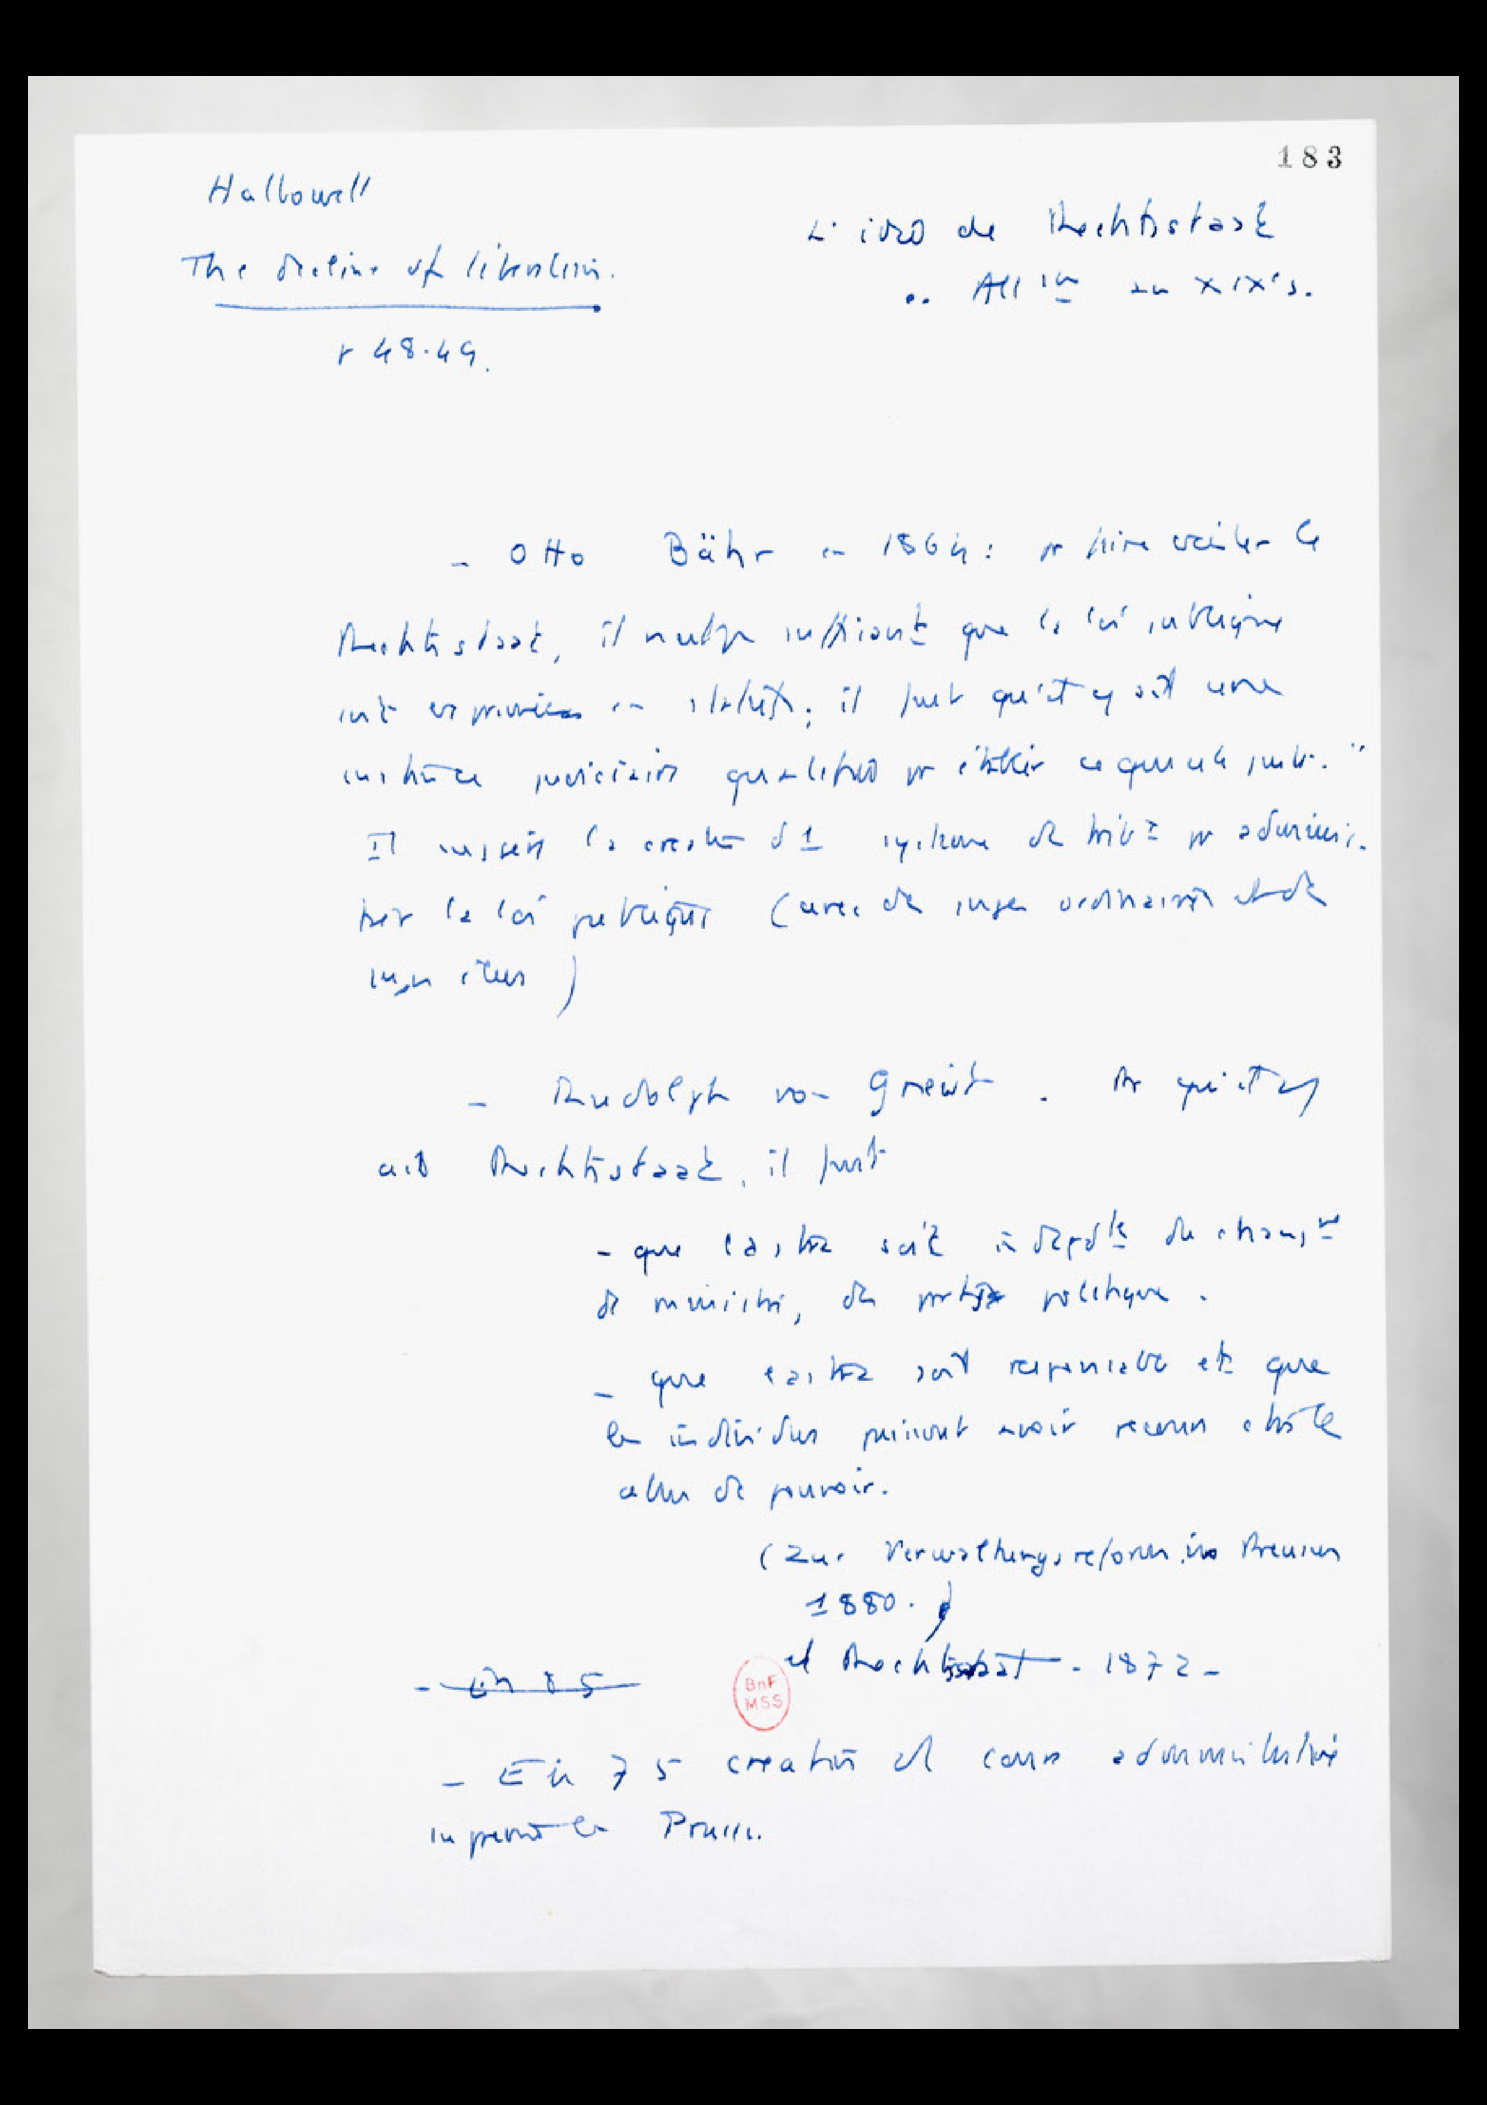 183
Hallowell
L'idée de Rechtsstaat
The decline of liberalism.
en All au XIXe s.
p 48.49.
- Otto Bähr en 1864 : pr faire exister le
Rechtsstaat, il n'est pas suffisant que la loi publique
soit exprimée en statuts ; il faut qu'il y ait une
instance judiciaire qualifiée pr établir ce qui est juste."
Il suggère la création d'1 système de trib pr adminis-
trer la loi publique (avec des juges ordinaires et des
juges élus)
- Rudolph von Gneist . Pr qu'il y
ait Rechtsstaat, il faut
- que l'astra soit indépdte des changts
de ministère, des partis politiques .
- que l'astra soit responsable et que
les individus puissent avoir recours contre
abus de pouvoir.
(Zur Verwaltungsreform in Preussen
1880.)
et Rechtsstaat - 1872 -
- En 85
BnF
MSS
- En 75 création de cours administratives
suprêmes en Prusse.